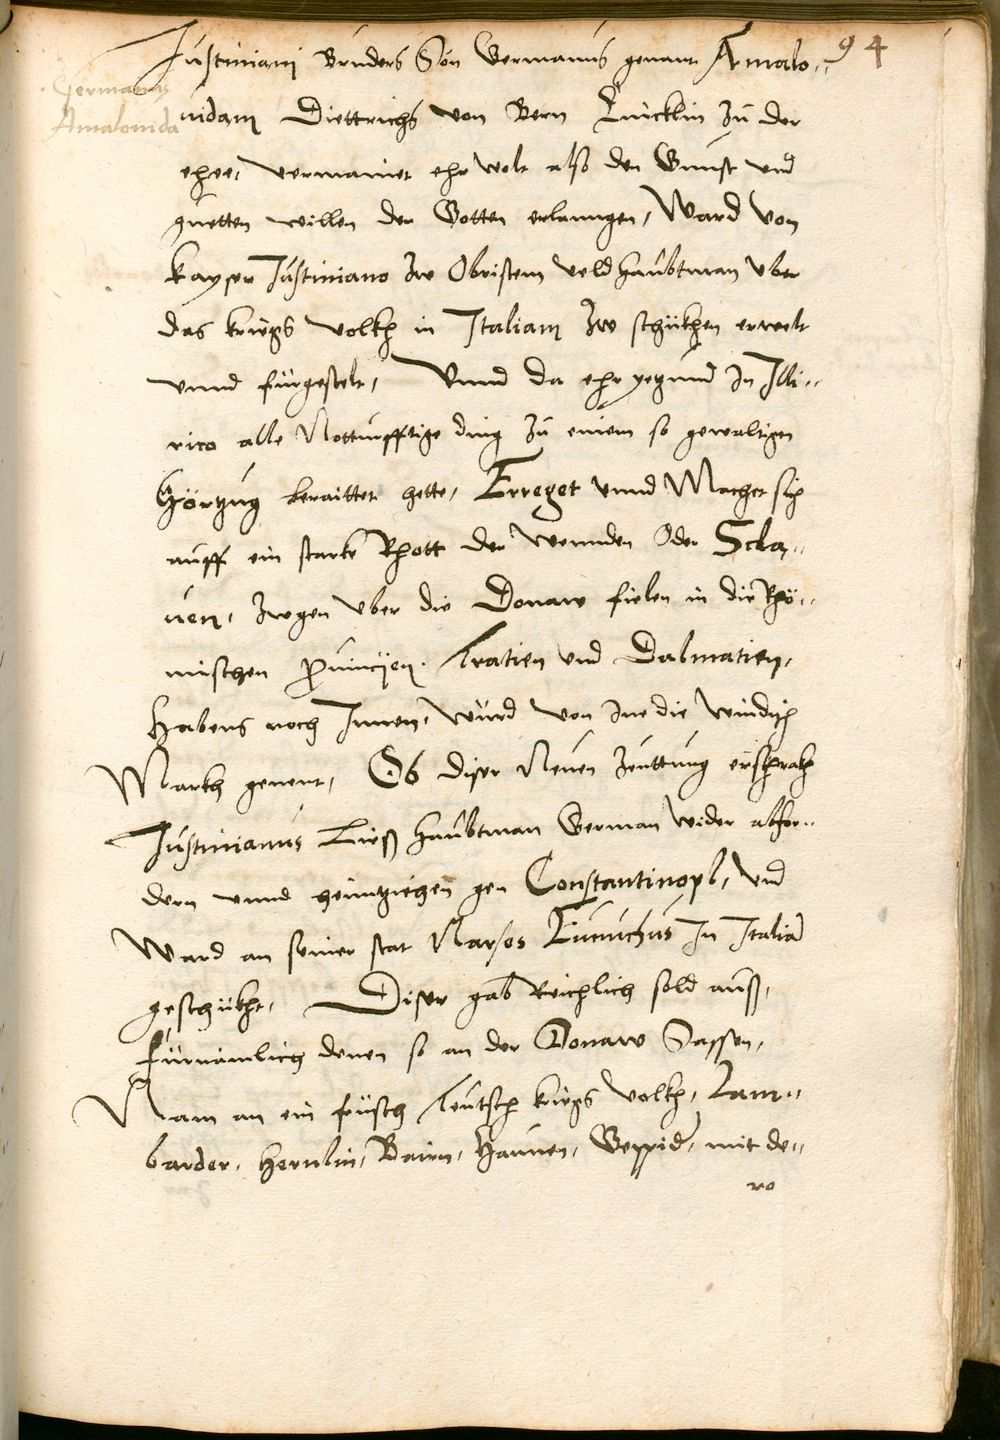 94
Justiniani Bruders Son Germanus genant Amalo-
Germanus
Amalonida
nidam Diettrichs von Bern Enicklin zu der
ehee, vermainet ehr wolt also den Gunst und
guetten willen der Gotten erlanngen, Ward von
Kayser Justiniano zw Obristem veld haubtman uber
das kriegs volkh in Italiam zw schükhen erwelt
unnd fürgestelt, Unnd da ehr yezund In Illi-
rico alle Notturfftige ding zu einem so gewaltigen
Hörzug beraittet hette, Erreget unnd Machet sich
auff ein starke Rhott der Wennden Oder Scla-
uen, zwgen uber die Donaw fielen in die Rhö-
mischen prouincijen. Cratien und Dalmatien,
Habens noch Innen, würd von Ine die Windisch
Markh genent, Ob diser Neuen zeuttung erschrakh
Justinianus Ließ haubtman German wider abfor-
dern unnd heimziehen gen Constantinopl, und
Ward an seiner stat Narses Eunuchus In Italiā
geschükht, Diser gab Reichlich sold auß,
fürnämlich denen so an der Donaw Sassen,
Nam an ein früsch Teutsch kriegs volkh, Lam-
barder, Herulin, Bairn, Haunen, Geppid, mit de-
ro